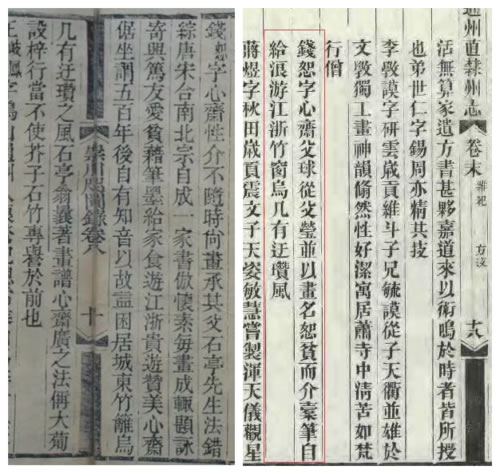 通州直隸州志 卷末 雜紀 方技 十六
活無算家遺方書甚夥嘉道來以術鳴於時者皆所授
也弟世仁字錫周亦精其技
李斅謨字研雲歲貢維斗子兄毓謨從子天衢並雄於
文斅獨工畫神韻翛然性好潔寓居蕭寺中清苦如梵
行僧
錢恕字心齋父球從父瑩並以畫名恕貧而介橐筆自
給浪游江浙竹窗烏几有迂瓚風
蔣煜字秋田歲貢震文子天姿敏慧嘗製渾天儀觀星
錢恕字心齋性介不隨時尚畫承其父石亭先生法錯
綜唐宋合南北宗自成一家書倣懷素每畫成輒題詠
寄興篤友愛貧藉筆墨給家食遊江浙貴遊贊美心齋
倨坐謂五百年後自有知音以故益困居城東竹籬烏
崇川咫聞錄卷八 十
几有迂瓚之風石亭翁義著畫譜心齋廣之法偁大菊
設梓行當不使芥子石竹專美於前也